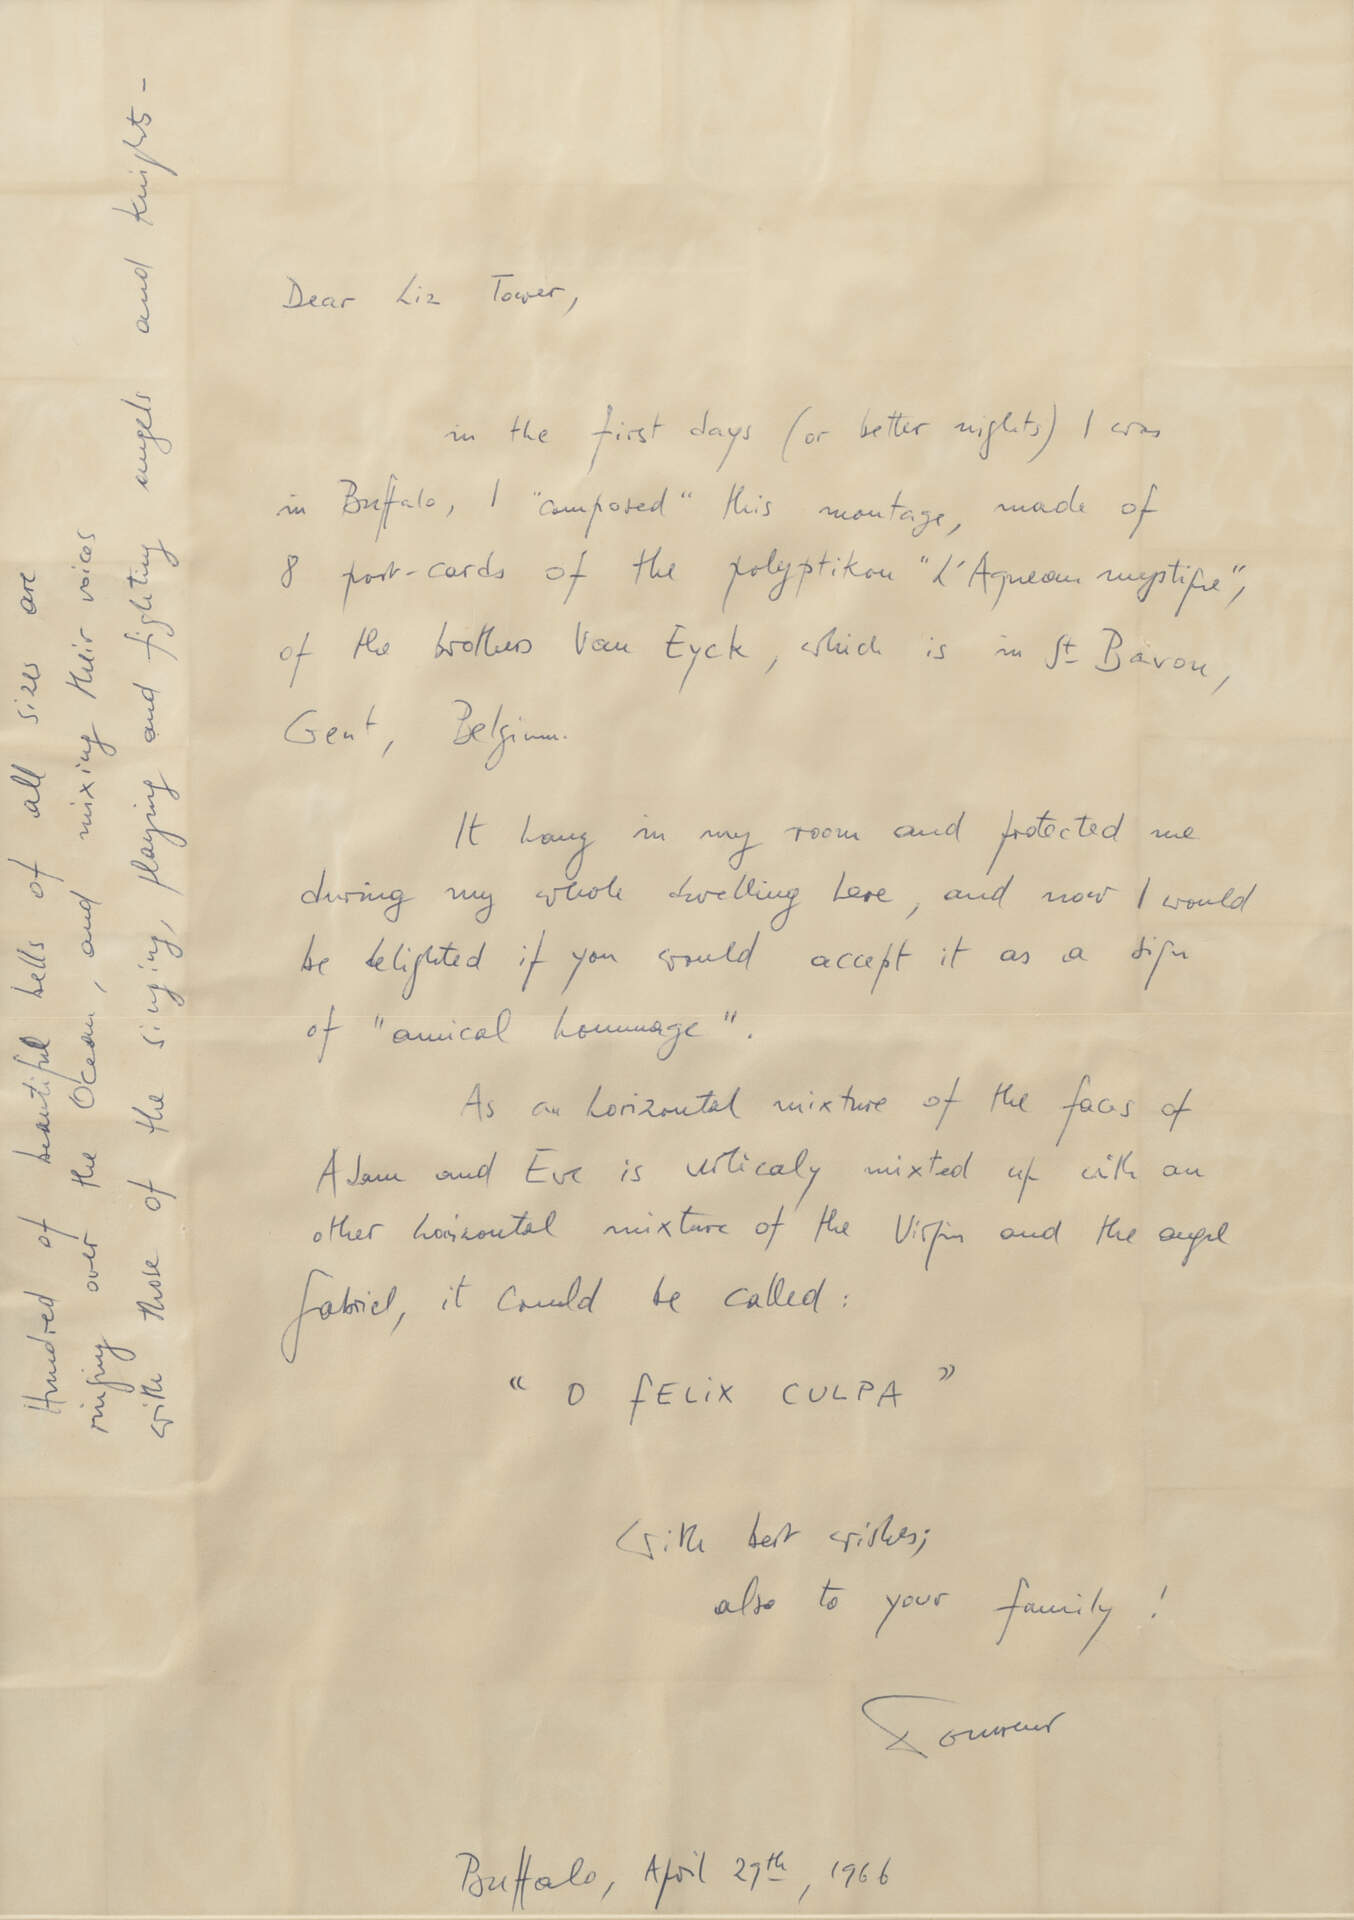 Dear Liz Tower,
in the first days (or better nights) I was
in Buffalo, I "composed" this montage, made of
8 post-cards of the polyptikon "L'Agneau mystique",
of the brothers Van Eyck, which is in St Bavon,
Gent, Belgium.
It hang in my room and protected me
during my whole dwelling here, and now I would
be delighted if you would accept it as a sign
of "amical hommage".
As an horizontal mixture of the faces of
Adam and Eve is verticaly mixted up with an
other horizontal mixture of the Virgin and the angel
Gabriel, it could be called:
" O FELIX CULPA "
With best wishes;
also to your family!
Buffalo, April 29th, 1966
Hundred of beautiful bells of all sizes are
ringing over the Ocean, and mixing their voices
with those of the singing, playing and fighting angels and knights -